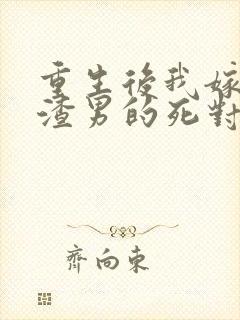 重生後我嫁
渣男的死對
齊向東